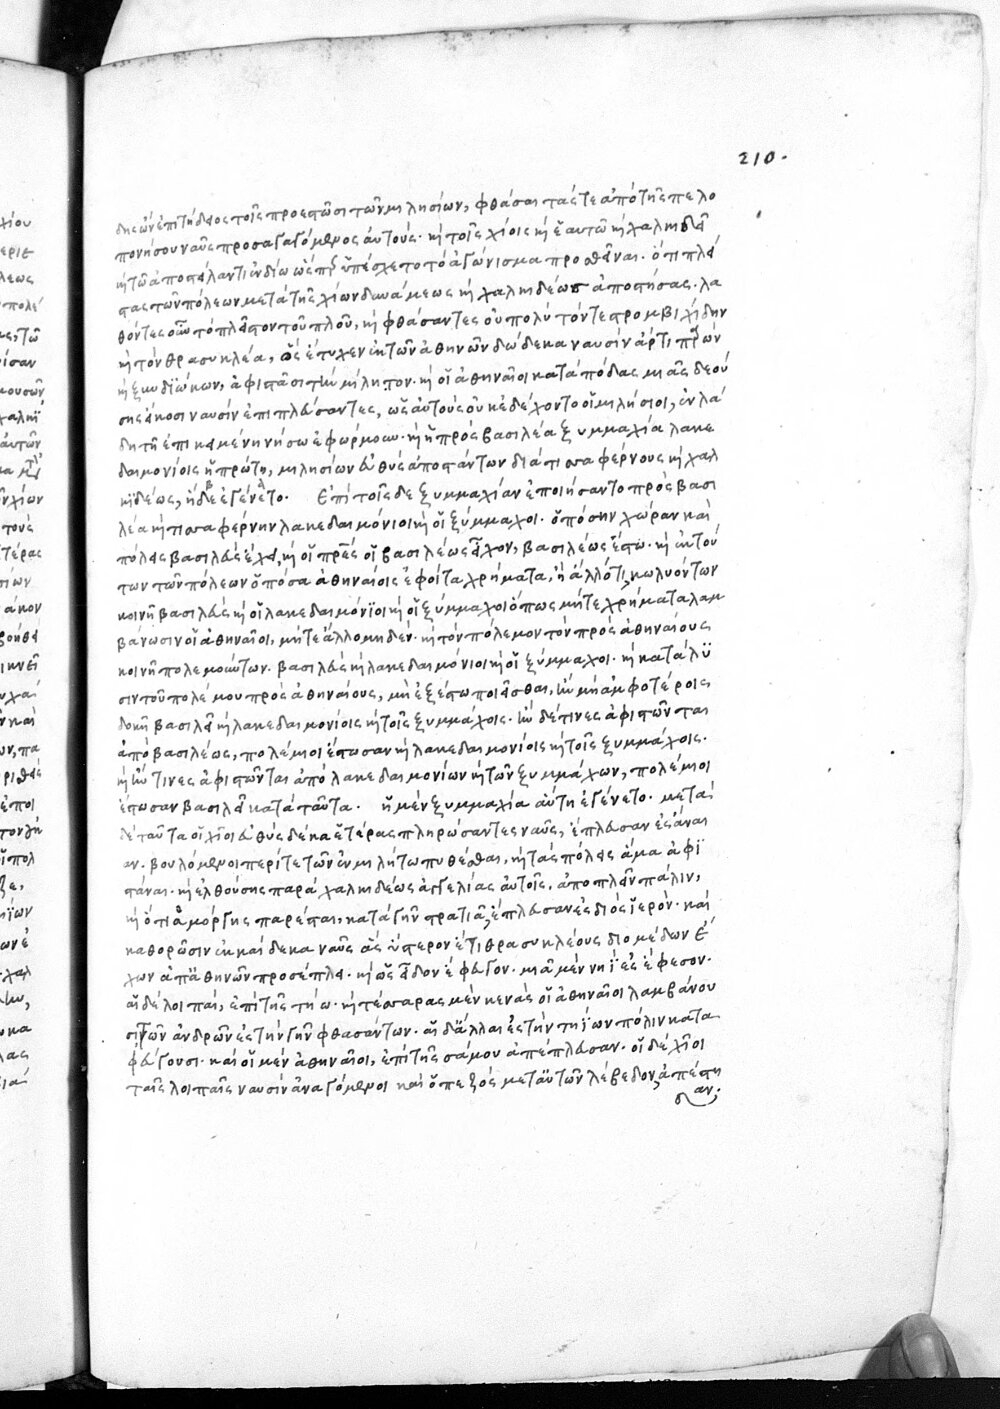 210.
δης ὢν ἐπιτήδειος τοῖς προεστῶσι τῶν μιλησίων, φθάσαι τάς τε ἀπὸ τῆς πελο
πονήσου ναῦς προσαγαγόμενος αὐτούς· κὴ τοῖς χίοις κὴ ἑαυτῶ κὴ χαλκιδεῖ
κὴ τῶ ἀποστείλαντι ἐνδίω ὥσπερ ὑπέσχετο τὸ ἀγώνισμα προσθεῖναι. ὅτι πλεί
στας τῶν πόλεων μετὰ τῆς χίων δυνάμεως κὴ χαλκιδέως ἀποστήσας. λα
θόντες οὖν τὸ πλεῖστον τοῦ πλοῦ, κὴ φθάσαντες οὐ πολὺ τόν τε στρομβιχίδην
κὴ τὸν θρασυκλέα, ὃς ἔτυχεν ἐκ τῶν ἀθηνῶν δώδεκα ναυσὶν ἄρτι παρὼν
κὴ ξυνδιώκων, ἀφιστᾶσι τὴν μίλητον. κὴ οἱ ἀθηναῖοι κατὰ πόδας μιᾶς δεού
σης εἴκοσι ναυσὶν ἐπιπλεύσαντες, ὡς αὐτοὺς οὐκ ἐδέχοντο οἱ μιλήσιοι, ἐν λά
δη τῆ ἐπικειμένη νήσω ἐφώρμουν. κὴ ἡ πρὸς βασιλέα ξυμμαχία λακε
δαιμονίοις ἡ πρώτη, μιλησίων εὐθὺς ἀποστάντων διὰ τισσαφέρνους κὴ χαλ
κιδέως, ἥδε ἐγένετο. Ἐπὶ τοῖσδε ξυμμαχίαν ἐποιήσαντο πρὸς βασι
λέα κὴ τισσαφέρνην λακεδαιμόνιοι κὴ οἱ ξύμμαχοι. ὁπόσην χώραν καὶ
πόλεις βασιλεὺς ἔχει, κὴ οἱ πρές οἱ βασιλέως εἶχον, βασιλέως ἔστω. κὴ ἐκ τού
των τῶν πόλεων ὁπόσα ἀθηναίοις ἐφοίτα χρήματα, ἢ ἄλλό τι, κωλυόντων
κοινῆ βασιλεὺς κὴ οἱ λακεδαιμόνϊοι κὴ οἱ ξύμμαχοι ὅπως μήτε χρήματα λαμ
βάνωσιν οἱ ἀθηναῖοι, μήτε ἄλλο μηδέν. κὴ τὸν πόλεμον τὸν πρὸς ἀθηναίους
κοινῆ πολεμούντων. βασιλεὺς κὴ λακεδαιμόνιοι κὴ οἱ ξύμμαχοι. κὴ κατάλϋ
σιν τοῦ πολέμου πρὸς ἀθηναίους, μὴ ἐξέστω ποιεῖσθαι, ἢν μὴ ἀμφοτέροις
δοκῆ βασιλεῖ κὴ λακεδαιμονίοις κὴ τοῖς ξυμμάχοις. ἢν δέ τινες ἀφιστῶνται
ἀπὸ βασιλέως, πολέμιοι ἔστωσαν κὴ λακεδαιμονίοις κὴ τοῖς ξυμμάχοις.
κὴ ἤν τινες ἀφιστῶνται ἀπὸ λακεδαιμονίων κὴ τῶν ξυμμάχων, πολέμιοι
ἔστωσαν βασιλεῖ κατὰ ταῦτα. ἡ μὲν ξυμμαχία αὕτη ἐγένετο. μετὰ
δὲ ταῦτα οἱ χῖοι εὐθὺς δέκα ἑτέρας πληρώσαντες ναῦς, ἔπλευσαν ἐς ἄναι
αν. βουλόμενοι περί τε τῶν ἐν μιλήτω πυθέσθαι, κὴ τὰς πόλεις ἅμα ἀφϊ
στάναι. κὴ ἐλθούσης παρὰ χαλκιδέως ἀγγελίας αὐτοῖς, ἀποπλεῖν πάλιν,
κὴ ὅτι ἀμόργης παρέσται, κατὰ γῆν στρατιᾶ, ἔπλευσαν ἐς διὸς ἱερόν. καὶ
καθορῶσιν ἑκκαίδεκα ναῦς ἃς ὕστερον ἔτι θρασυκλέους διομέδων ἔ
χων ἀπ' ἀθηνῶν προσέπλει. κὴ ὡς εἶδον ἔφευγον. μιᾶ μὲν νηῒ ἐς ἔφεσον.
αἱ δὲ λοιπαὶ, ἐπὶ τῆς τήω. κὴ τέσσαρας μὲν κενὰς οἱ ἀθηναῖοι λαμβάνου
σι, τῶν ἀνδρῶν ἐς τὴν γῆν φθασάντων. αἱ δ' ἄλλαι ἐς τὴν τηΐων πόλιν κατα
φεύγουσι. καὶ οἱ μὲν ἀθηναῖοι, ἐπὶ τῆς σάμου ἀπέπλευσαν. οἱ δὲ χῖοι
ταῖς λοιπαῖς ναυσὶν ἀναγόμενοι καὶ ὁ πεζὸς μετ' αὐτῶν λέβεδον ἀπέστη
σαν.